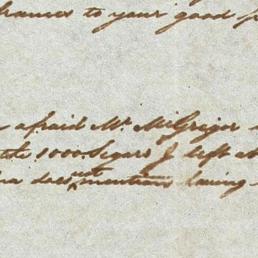 to your good
afraid Mr. McGrigor
the 1000 Segars I left
does not mention having